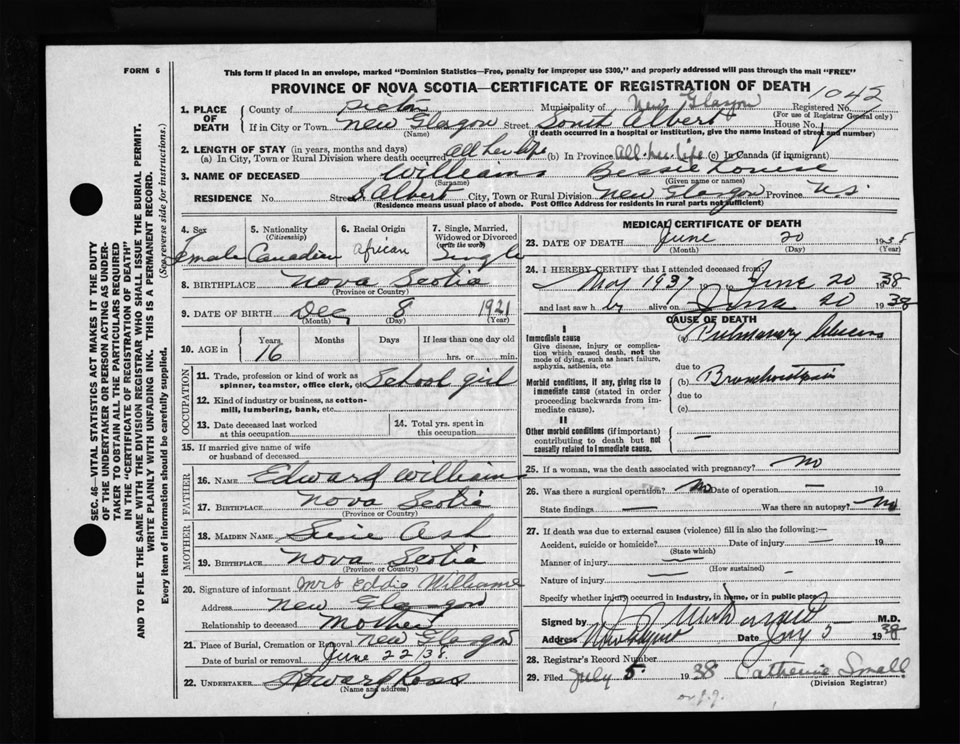 FORM 6
This form if placed in an envelope, marked "Dominion Statistics—Free, penalty for improper use $300," and properly addressed will pass through the mail "FREE"
PROVINCE OF NOVA SCOTIA—CERTIFICATE OF REGISTRATION OF DEATH
1042
1. PLACE OF DEATH
County of Pictou Municipality of New Glasgow Registered No.
(For use of Registrar General only)
If in City or Town New Glasgow Street South Albert House No.
(Name) (If death occurred in a hospital or institution, give the name instead of street and number)
2. LENGTH OF STAY (in years, months and days)
(a) In City, Town or Rural Division where death occurred All her life (b) In Province All her life (c) In Canada (if immigrant)
3. NAME OF DECEASED Williams Bessie Louise
(Surname) (Given name or names)
RESIDENCE No. Street S Albert City, Town or Rural Division New Glasgow Province N.S.
(Residence means usual place of abode. Post Office Address for residents in rural parts not sufficient)
4. Sex
Female
5. Nationality
(Citizenship)
Canadian
6. Racial Origin
African
7. Single, Married, Widowed or Divorced
(write the word)
Single
8. BIRTHPLACE Nova Scotia
(Province or Country)
9. DATE OF BIRTH Dec 8 1921
(Month) (Day) (Year)
10. AGE in Years Months Days If less than one day old
16 hrs. or min.
OCCUPATION
11. Trade, profession or kind of work as spinner, teamster, office clerk, etc. School girl
12. Kind of industry or business, as cotton-mill, lumbering, bank, etc.
13. Date deceased last worked at this occupation
14. Total yrs. spent in this occupation
15. If married give name of wife or husband of deceased
FATHER
16. NAME Edward Williams
17. BIRTHPLACE Nova Scotia
(Province or Country)
MOTHER
18. MAIDEN NAME Susie Ash
19. BIRTHPLACE Nova Scotia
(Province or Country)
20. Signature of informant Mrs Eddie Williams
Address New Glasgow
Relationship to deceased Mother
21. Place of Burial, Cremation or Removal New Glasgow
Date of burial or removal June 22/38
22. UNDERTAKER Edward Ross
(Name and address)
MEDICAL CERTIFICATE OF DEATH
23. DATE OF DEATH June 20 1938
(Month) (Day) (Year)
24. I HEREBY CERTIFY that I attended deceased from:
May 1937 19 to June 20 1938
and last saw her alive on June 20 1938
CAUSE OF DEATH
I
Immediate cause
Give disease, injury or complication which caused death, not the mode of dying, such as heart failure, asphyxia, asthenia, etc.
(a) Pulmonary Abscess
due to
Morbid conditions, if any, giving rise to immediate cause (stated in order proceeding backwards from immediate cause).
(b)
due to
(c)
II
Other morbid conditions (if important) contributing to death but not causally related to immediate cause.
—
25. If a woman, was the death associated with pregnancy? No
26. Was there a surgical operation? No Date of operation — 19
State findings — Was there an autopsy? No
27. If death was due to external causes (violence) fill in also the following:—
Accident, suicide or homicide? Date of injury — 19
(State which)
Manner of injury —
(How sustained)
Nature of injury —
Specify whether injury occurred in industry, in home, or in public place
Signed by M.D.
Address Date July 5 1938
28. Registrar's Record Number
29. Filed July 5 1938 Catherine Small
(Division Registrar)
SEC. 46—VITAL STATISTICS ACT MAKES IT THE DUTY
OF THE UNDERTAKER OR PERSON ACTING AS UNDER-
TAKER TO OBTAIN ALL THE PARTICULARS REQUIRED
IN THE "CERTIFICATE OF REGISTRATION OF DEATH"
AND TO FILE THE SAME WITH THE DIVISION REGISTRAR WHO SHALL ISSUE THE BURIAL PERMIT.
WRITE PLAINLY WITH UNFADING INK. THIS IS A PERMANENT RECORD.
Every item of information should be carefully supplied. (See reverse side for instructions.)